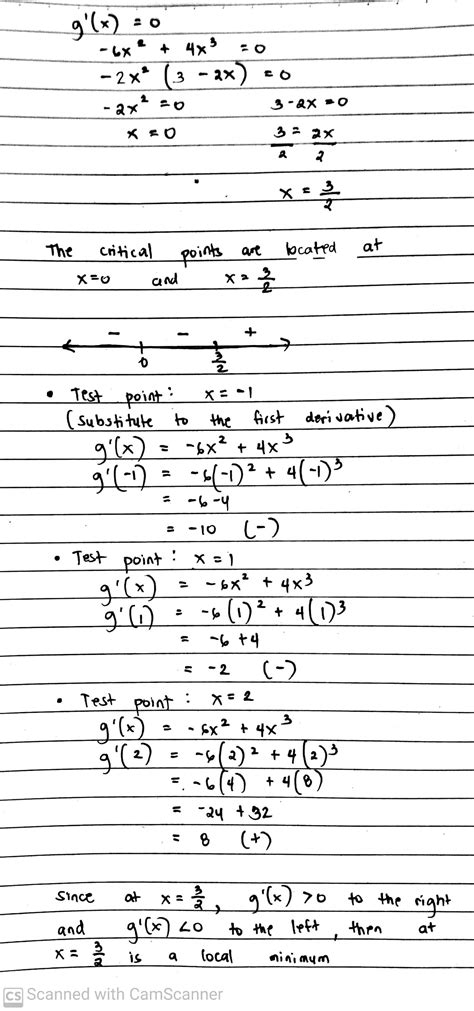 g'(x) = 0
-6x² + 4x³ = 0
-2x² (3 - 2x) = 0
-2x² = 0 3-2x = 0
x = 0 3/2 = 2x/2
x = 3/2
The critical points are located at
x=0 and x = 3/2
- - +
0 3/2
• Test point : x = -1
(substitute to the first derivative)
g'(x) = -6x² + 4x³
g'(-1) = -6(-1)² + 4(-1)³
= -6 -4
= -10 (-)
• Test point : x = 1
g'(x) = -6x² + 4x³
g'(1) = -6(1)² + 4(1)³
= -6 +4
= -2 (-)
• Test point : x = 2
g'(x) = -6x² + 4x³
g'(2) = -6(2)² + 4(2)³
= -6(4) + 4(8)
= -24 + 32
= 8 (+)
Since at x = 3/2, g'(x) >0 to the right
and g'(x) <0 to the left, then at
x = 3/2 is a local minimum
CS Scanned with CamScanner